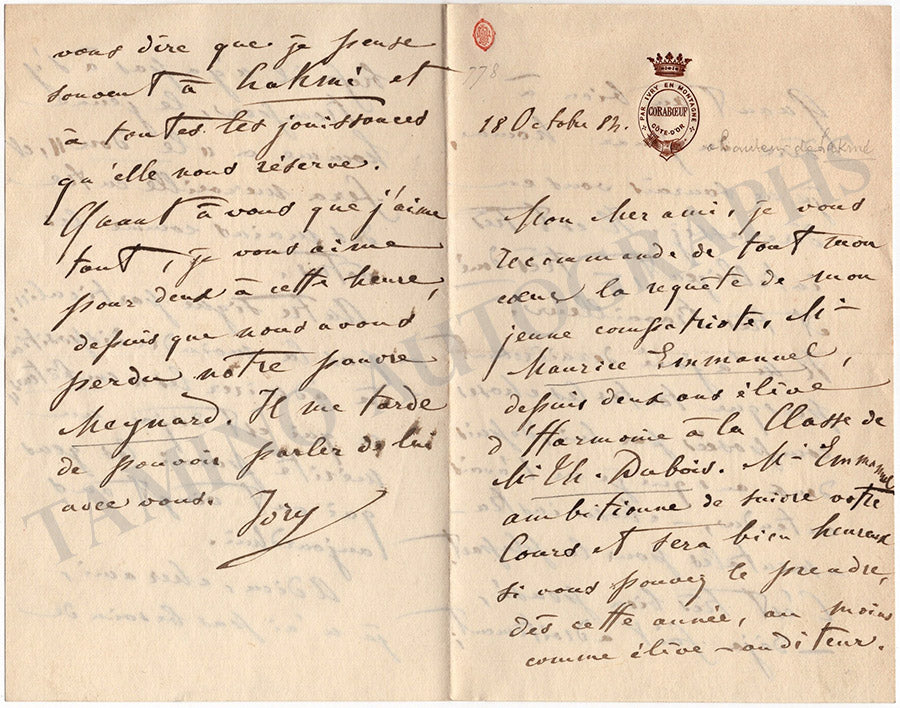 778 –
PAR IVRY EN MONTAGNE
CORABŒUF
CÔTE-D'OR
18 Octobre 84.
a l'auteur de Lakmé
Mon cher ami, je vous
recommande de tout mon
cœur la requête de mon
jeune compatriote, Mr
Maurice Emmanuel,
depuis deux ans élève
d'Harmonie à la Classe de
Mr Th. Dubois. Mr Emmanuel
ambitionne de suivre votre
Cours et sera bien heureux
si vous pouvez le prendre,
dès cette année, au moins
comme élève-auditeur.
vous dire que je pense
souvent à Lakmé et
à toutes les jouissances
qu'elle nous réserve.
Quant à vous que j'aime
tant, je vous aime
pour deux à cette heure,
depuis que nous avons
perdu notre pauvre
Meynard. Il me tarde
de pouvoir parler de lui
avec vous.
Ivry
TAMINO AUTOGRAPHS